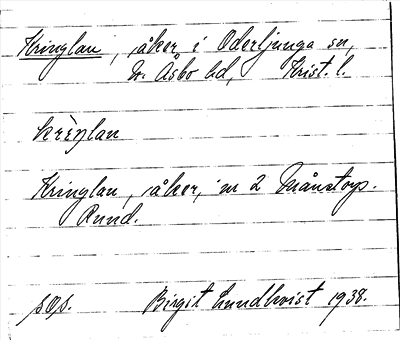 Kringlan, åker i Oderljunga sn,
N. Åsbo hd, Krist. l.
krìŋlan
Kringlan, åker, nr 2 Månstorp.
Rund.
Birgit Lundkvist 1938.